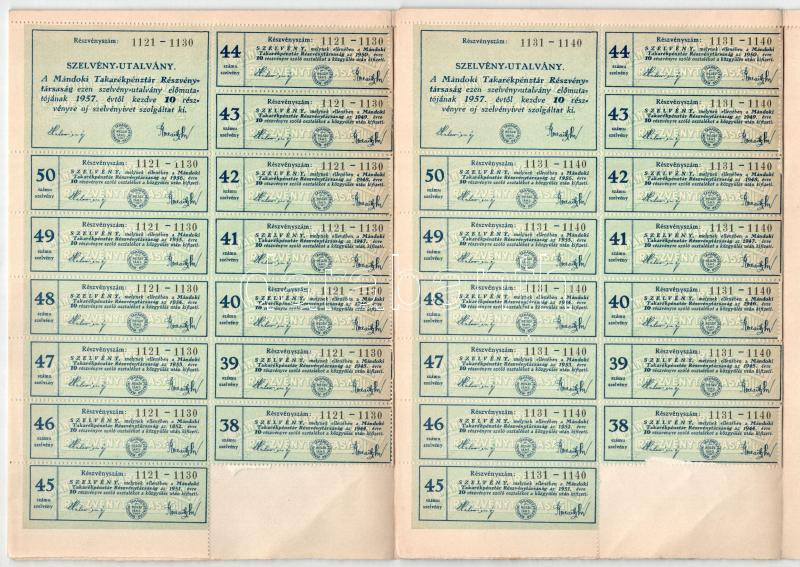 Részvényszám: 1121 - 1130
SZELVÉNY-UTALVÁNY.
A Mándoki Takarékpénztár Részvény-
társaság ezen szelvény-utalvány előmuta-
tójának 1957. évtől kezdve 10 rész-
vényre uj szelvényivet szolgáltat ki.
50
száma
szelvény
Részvényszám: 1121 - 1130
SZELVÉNY, melynek ellenében a Mándoki
Takarékpénztár Részvénytársaság az 1956. évre
10 részvényre szóló osztalékot a közgyülés után kifizeti.
49
száma
szelvény
Részvényszám: 1121 - 1130
SZELVÉNY, melynek ellenében a Mándoki
Takarékpénztár Részvénytársaság az 1955. évre
10 részvényre szóló osztalékot a közgyülés után kifizeti.
48
száma
szelvény
Részvényszám: 1121 - 1130
SZELVÉNY, melynek ellenében a Mándoki
Takarékpénztár Részvénytársaság az 1954. évre
10 részvényre szóló osztalékot a közgyülés után kifizeti.
47
száma
szelvény
Részvényszám: 1121 - 1130
SZELVÉNY, melynek ellenében a Mándoki
Takarékpénztár Részvénytársaság az 1953. évre
10 részvényre szóló osztalékot a közgyülés után kifizeti.
46
száma
szelvény
Részvényszám: 1121 - 1130
SZELVÉNY, melynek ellenében a Mándoki
Takarékpénztár Részvénytársaság az 1952. évre
10 részvényre szóló osztalékot a közgyülés után kifizeti.
45
száma
szelvény
Részvényszám: 1121 - 1130
SZELVÉNY, melynek ellenében a Mándoki
Takarékpénztár Részvénytársaság az 1951. évre
10 részvényre szóló osztalékot a közgyülés után kifizeti.
44
száma
szelvény
Részvényszám: 1121 - 1130
SZELVÉNY, melynek ellenében a Mándoki
Takarékpénztár Részvénytársaság az 1950. évre
10 részvényre szóló osztalékot a közgyülés után kifizeti.
43
száma
szelvény
Részvényszám: 1121 - 1130
SZELVÉNY, melynek ellenében a Mándoki
Takarékpénztár Részvénytársaság az 1949. évre
10 részvényre szóló osztalékot a közgyülés után kifizeti.
42
száma
szelvény
Részvényszám: 1121 - 1130
SZELVÉNY, melynek ellenében a Mándoki
Takarékpénztár Részvénytársaság az 1948. évre
10 részvényre szóló osztalékot a közgyülés után kifizeti.
41
száma
szelvény
Részvényszám: 1121 - 1130
SZELVÉNY, melynek ellenében a Mándoki
Takarékpénztár Részvénytársaság az 1947. évre
10 részvényre szóló osztalékot a közgyülés után kifizeti.
40
száma
szelvény
Részvényszám: 1121 - 1130
SZELVÉNY, melynek ellenében a Mándoki
Takarékpénztár Részvénytársaság az 1946. évre
10 részvényre szóló osztalékot a közgyülés után kifizeti.
39
száma
szelvény
Részvényszám: 1121 - 1130
SZELVÉNY, melynek ellenében a Mándoki
Takarékpénztár Részvénytársaság az 1945. évre
10 részvényre szóló osztalékot a közgyülés után kifizeti.
38
száma
szelvény
Részvényszám: 1121 - 1130
SZELVÉNY, melynek ellenében a Mándoki
Takarékpénztár Részvénytársaság az 1944. évre
10 részvényre szóló osztalékot a közgyülés után kifizeti.
Részvényszám: 1131 - 1140
SZELVÉNY-UTALVÁNY.
A Mándoki Takarékpénztár Részvény-
társaság ezen szelvény-utalvány előmuta-
tójának 1957. évtől kezdve 10 rész-
vényre uj szelvényivet szolgáltat ki.
50
száma
szelvény
Részvényszám: 1131 - 1140
SZELVÉNY, melynek ellenében a Mándoki
Takarékpénztár Részvénytársaság az 1956. évre
10 részvényre szóló osztalékot a közgyülés után kifizeti.
49
száma
szelvény
Részvényszám: 1131 - 1140
SZELVÉNY, melynek ellenében a Mándoki
Takarékpénztár Részvénytársaság az 1955. évre
10 részvényre szóló osztalékot a közgyülés után kifizeti.
48
száma
szelvény
Részvényszám: 1131 - 1140
SZELVÉNY, melynek ellenében a Mándoki
Takarékpénztár Részvénytársaság az 1954. évre
10 részvényre szóló osztalékot a közgyülés után kifizeti.
47
száma
szelvény
Részvényszám: 1131 - 1140
SZELVÉNY, melynek ellenében a Mándoki
Takarékpénztár Részvénytársaság az 1953. évre
10 részvényre szóló osztalékot a közgyülés után kifizeti.
46
száma
szelvény
Részvényszám: 1131 - 1140
SZELVÉNY, melynek ellenében a Mándoki
Takarékpénztár Részvénytársaság az 1952. évre
10 részvényre szóló osztalékot a közgyülés után kifizeti.
45
száma
szelvény
Részvényszám: 1131 - 1140
SZELVÉNY, melynek ellenében a Mándoki
Takarékpénztár Részvénytársaság az 1951. évre
10 részvényre szóló osztalékot a közgyülés után kifizeti.
44
száma
szelvény
Részvényszám: 1131 - 1140
SZELVÉNY, melynek ellenében a Mándoki
Takarékpénztár Részvénytársaság az 1950. évre
10 részvényre szóló osztalékot a közgyülés után kifizeti.
43
száma
szelvény
Részvényszám: 1131 - 1140
SZELVÉNY, melynek ellenében a Mándoki
Takarékpénztár Részvénytársaság az 1949. évre
10 részvényre szóló osztalékot a közgyülés után kifizeti.
42
száma
szelvény
Részvényszám: 1131 - 1140
SZELVÉNY, melynek ellenében a Mándoki
Takarékpénztár Részvénytársaság az 1948. évre
10 részvényre szóló osztalékot a közgyülés után kifizeti.
41
száma
szelvény
Részvényszám: 1131 - 1140
SZELVÉNY, melynek ellenében a Mándoki
Takarékpénztár Részvénytársaság az 1947. évre
10 részvényre szóló osztalékot a közgyülés után kifizeti.
40
száma
szelvény
Részvényszám: 1131 - 1140
SZELVÉNY, melynek ellenében a Mándoki
Takarékpénztár Részvénytársaság az 1946. évre
10 részvényre szóló osztalékot a közgyülés után kifizeti.
39
száma
szelvény
Részvényszám: 1131 - 1140
SZELVÉNY, melynek ellenében a Mándoki
Takarékpénztár Részvénytársaság az 1945. évre
10 részvényre szóló osztalékot a közgyülés után kifizeti.
38
száma
szelvény
Részvényszám: 1131 - 1140
SZELVÉNY, melynek ellenében a Mándoki
Takarékpénztár Részvénytársaság az 1944. évre
10 részvényre szóló osztalékot a közgyülés után kifizeti.